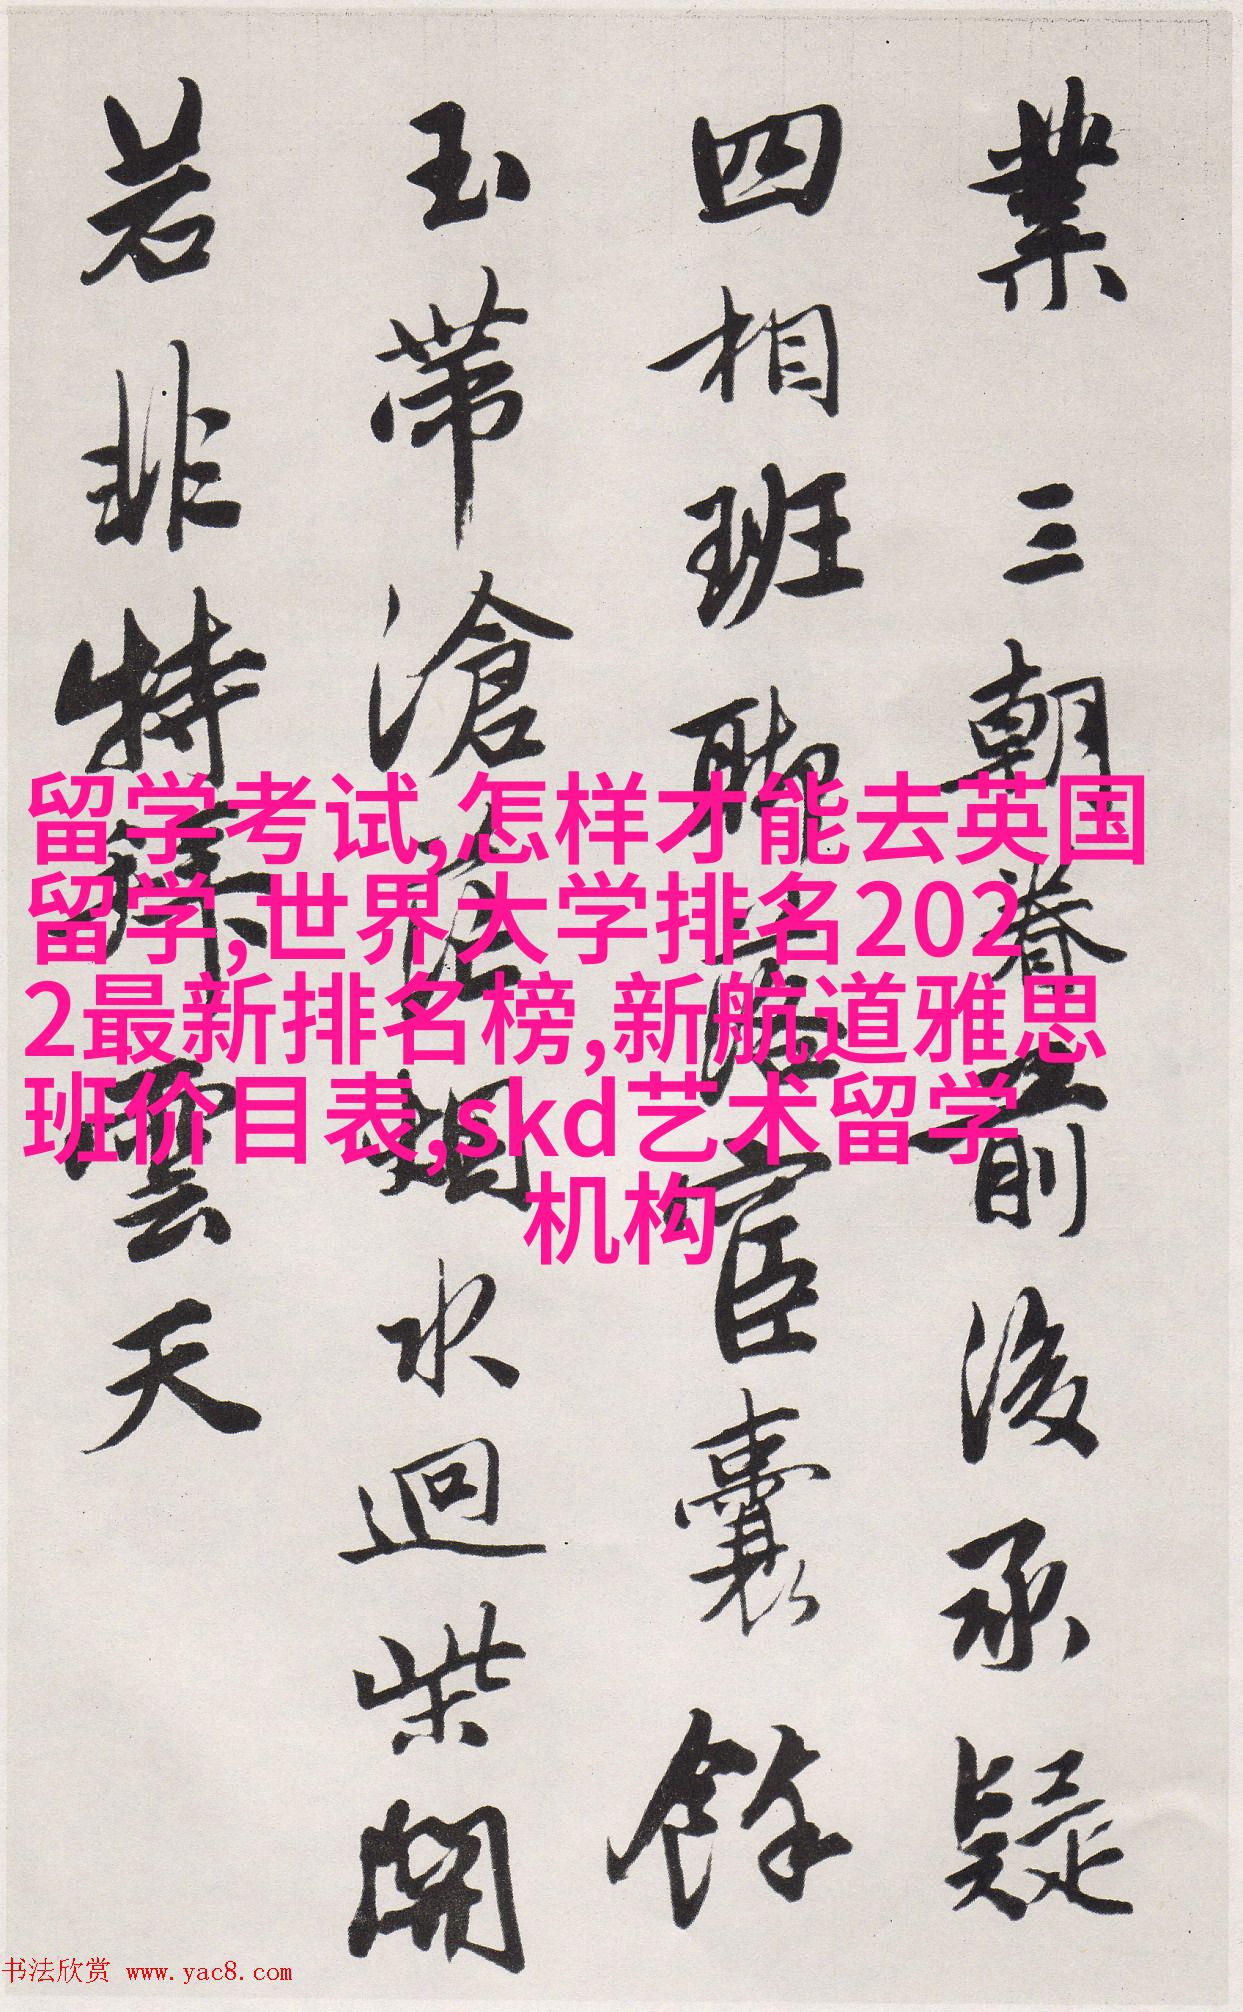 業 三朝眷 前後承疑
四相班聯 宦囊餘
玉帶滄 烟水迴柴開
若非特拜雲天
留学考试,怎样才能去英国
留学,世界大学排名202
2最新排名榜,新航道雅思
班价目表,skd艺术留学
机构
书法欣赏 www.yac8.com